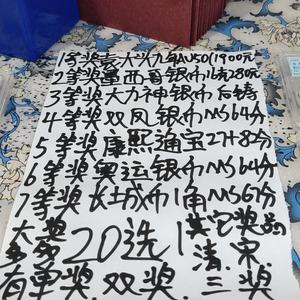 1等奖袁大头九年MS01900元
2等奖墨西哥银币1盎280元
3等奖大力神银币后铸
4等奖双凤银币MS64分
5等奖康熙通宝27+82分
6等奖奥运银币MS64分
7等奖长城币1角MS6分
大奖20选1其它奖品
多多清.宋.
有单奖.双奖.三奖